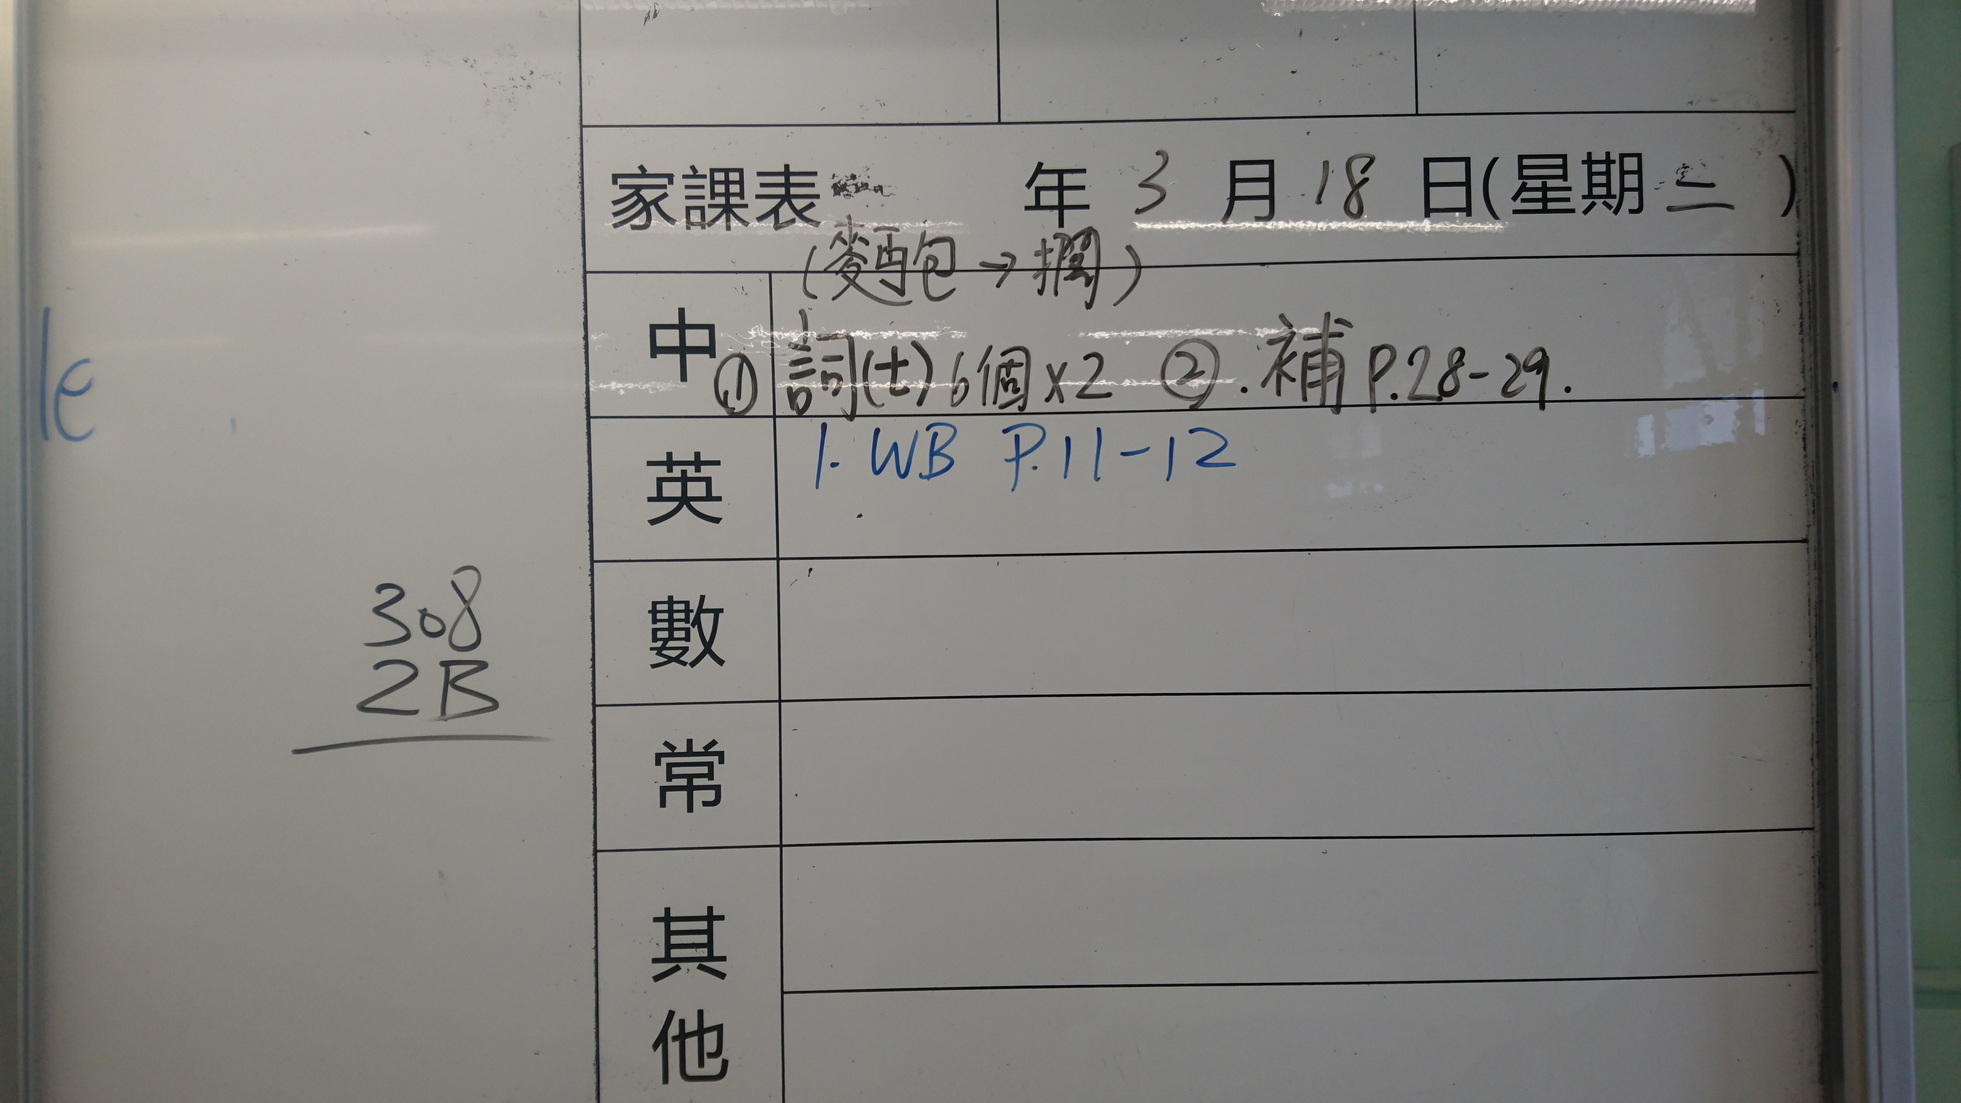 家課表 年 3 月 18 日(星期 二 )
(麵包→擱)
中 ① 詞(七)6個x2 ②.補P.28-29.
英 1. WB P.11-12
數
常
其他
le
308
2B